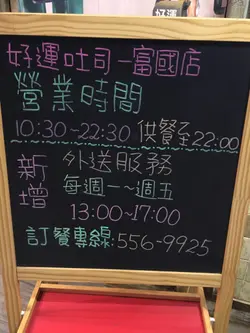 好運吐司－富國店
營業時間
10:30-22:30 供餐至22:00
新增 外送服務
每週一～週五
13:00-17:00
訂餐專線:556-9925